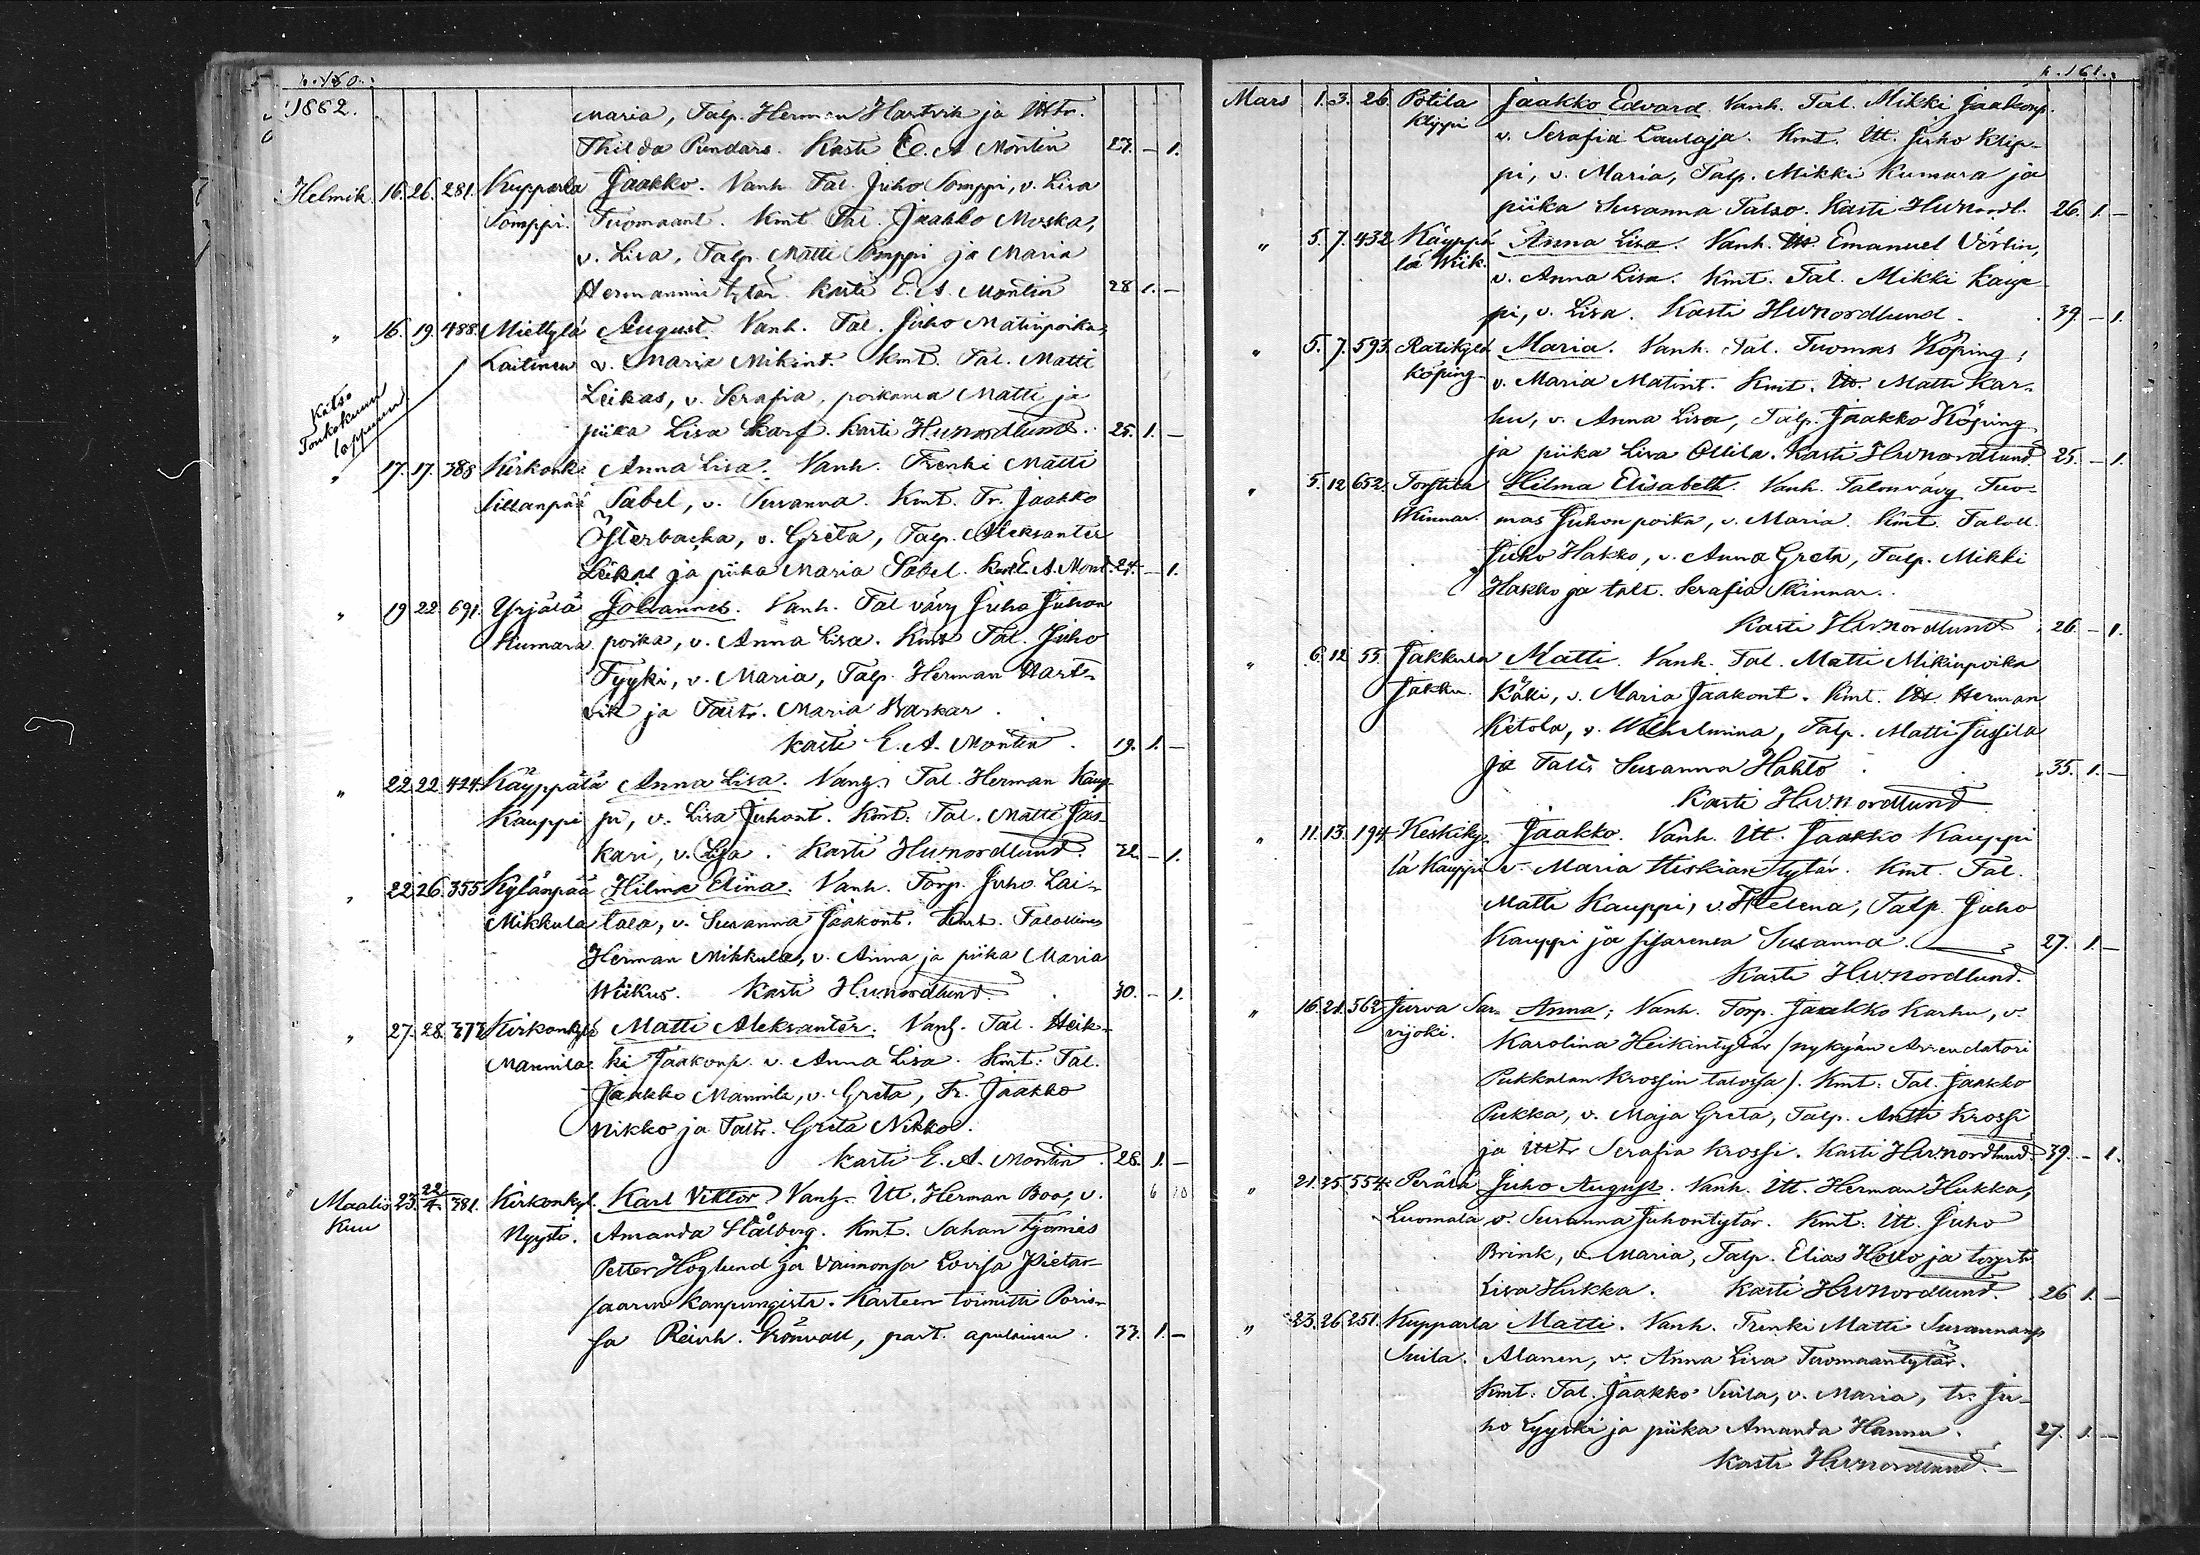 1862.
Maria, Talp. Herman Hartvik ja Ittr.
Thilda Rundars. Kasti E. A Montin 27. — 1.
Helmik. 16. 26. 281. Kupparla Jaakko. Vanh. Tal. Juho Somppi, v. Lisa
Somppi. Tuomaant. Kmt. Tal. Jaakko Moska,
v. Lisa, Talp. Matti Somppi ja Maria
Hermannin tytär. Kasti E. A. Montin 28 1. —
" 16. 19. 488. Miettylä August. Vanh. Tal. Juho Matinpoika
Laitinen v. Maria Mikint. Kmt. Tal. Matti
Leikas, v. Serafia, poikansa Matti ja
piika Lisa Karf. Kasti H.W.nordlund. 25. 1. —
Katso
Toukokuun
loppuun
" 17. 17. 388 Kirkonk. Anna Lisa. Vanh. Trenki Matti
Sillanpää Sabel, v. Susanna. Kmt. Tr. Jaakko
Österbacka, v. Greta, Talp. Aleksanter
Leikas ja piika Maria Sabel. Kasti E. A. Mont. 24. — 1.
" 19 22. 691. Yrjälä Johannes. Vanh. Tal vävy Juho Juhon
Kumara poika, v. Anna Lisa. Kmt Tal. Juho
Tyyki, v. Maria, Talp. Herman Hart-
vik ja Taltr. Maria Barkar.
Kasti E. A. Montin. 19. 1. —
" 22 22. 424. Käyppälä Anna Lisa. Vanh. Tal. Herman Kaup
Kauppi pi, v. Lisa Juhont. Kmt. Tal. Matti Jäs
kari, v. Lisa. Kasti H.W.nordlund. 32. — 1.
" 22 26. 355 Kylänpää Hilma Elina. Vanh. Torp. Juho Lai-
Mikkula tala, v. Susanna Jaakont. Kmt. Talollinen
Herman Mikkula, v. Anna ja piika Maria
Wiikus. Kasti H.W.nordlund. 30. — 1.
" 27. 28. 373 Kirkonkylä Matti Aleksanter. Vanh. Tal. Heik-
Mannila ki Jaakonp. v. Anna Lisa. Kmt. Tal.
Jaakko Mannila, v. Greta, Tr. Jaakko
Nikko ja Taltr. Greta Nikko.
Kasti E. A. Montin. 28. 1. —
Maalis 23. 22/4. 381. Kirkonkyl. Karl Viktor. Vanh. Itt. Herman Boo, v. 6 10
kuu Nyysti. Amanda Stålberg. Kmt. Sahan työmies
Petter Höglund ja vaimonsa Lovisa Pietar-
saaren kaupungista. Kasteen toimitti Poris-
sa Reinh. Grönvall, past. apulainen. 33. 1. —
p. 161.
Mars 1. 3. 26. Potila Jaakko Edvard. Vanh. Tal. Mikki Jaakonp.
Klippi v. Serafia Laulaja. Kmt. Itt. Juho Klip-
pi, v. Maria, Talp. Mikki Kumara ja
piika Susanna Talso. Kasti H.W.nordl. 26. 1. —
" 5. 7. 432 Käyppä Anna Lisa. Vanh. Itt. Emanuel Vörlin,
lä Wiik. v. Anna Lisa. Kmt. Tal. Mikki Kaup
pi, v. Lisa. Kasti H.W.nordlund. 39. — 1.
" 5. 7. 593. Ratikylä Maria. Vanh. Tal. Tuomas Köping,
Köping v. Maria Matint. Kmt. Itt. Matti Kar-
hu, v. Anna Lisa, Talp. Jaakko Köping
ja piika Lisa Ollila. Kasti H.W.nordlund. 25. — 1.
" 5. 12 652. Torstila Hilma Elisabeth. Vanh. Talonvävy Tuo-
Skinnar. mas Juhonpoika, v. Maria. Kmt. Taloll.
Juho Hakko, v. Anna Greta, Talp. Mikki
Hakko ja taltr. Serafia Skinnar.
Kasti H.W.nordlund. 26. — 1.
" 6. 12 55. Jakkula Matti. Vanh. Tal. Matti Mikinpoika
Jakku. Källi, v. Maria Jaakont. Kmt. Itt. Herman
Ketola, v. Wilhelmina, Talp. Matti Jussila
ja Taltr. Susanna Hahto. 35. 1. —
Kasti H.W.nordlund
" 11. 13. 194 Keskiky Jaakko. Vanh. Itt. Jaakko Kauppi
lä Kauppi v. Maria Hiskiantytär. Kmt. Tal.
Matti Kauppi, v. Helena, Talp. Juho
Kauppi ja sisarensa Susanna. 27. 1. —
Kasti H.W.nordlund.
" 16. 21. 562 Jurva Sar Anna; Vanh. Torp. Jaakko Karhu, v.
vijoki. Karolina Heikintytär (nykyän Arrendatori
Pukkalan Krossin talossa). Kmt: Tal. Jaakko
Pukka, v. Maja Greta, Talp. Antti Krossi
ja Ittr Serafia Krossi. Kasti H.W.nordlund. 39. — 1.
" 21. 25. 554. Perälä Juho August. Vanh. Itt. Herman Hukka,
Luomala v. Susanna Juhontytär. Kmt: Itt. Juho
Brink, v. Maria, Talp. Elias Hollo ja torptr
Lisa Hukka. Kasti H.W.Nordlund. 26 1. —
" 23. 26 251. Kupparla Matti. Vanh. Trenki Matti Susannanp
Suila. Alanen, v. Anna Lisa Tuomaantytär.
Kmt: Tal. Jaakko Suila, v. Maria, tr. Ju-
ho Lyyski ja piika Amanda Hannu. 27. 1. —
Kasti H.W.nordlund.